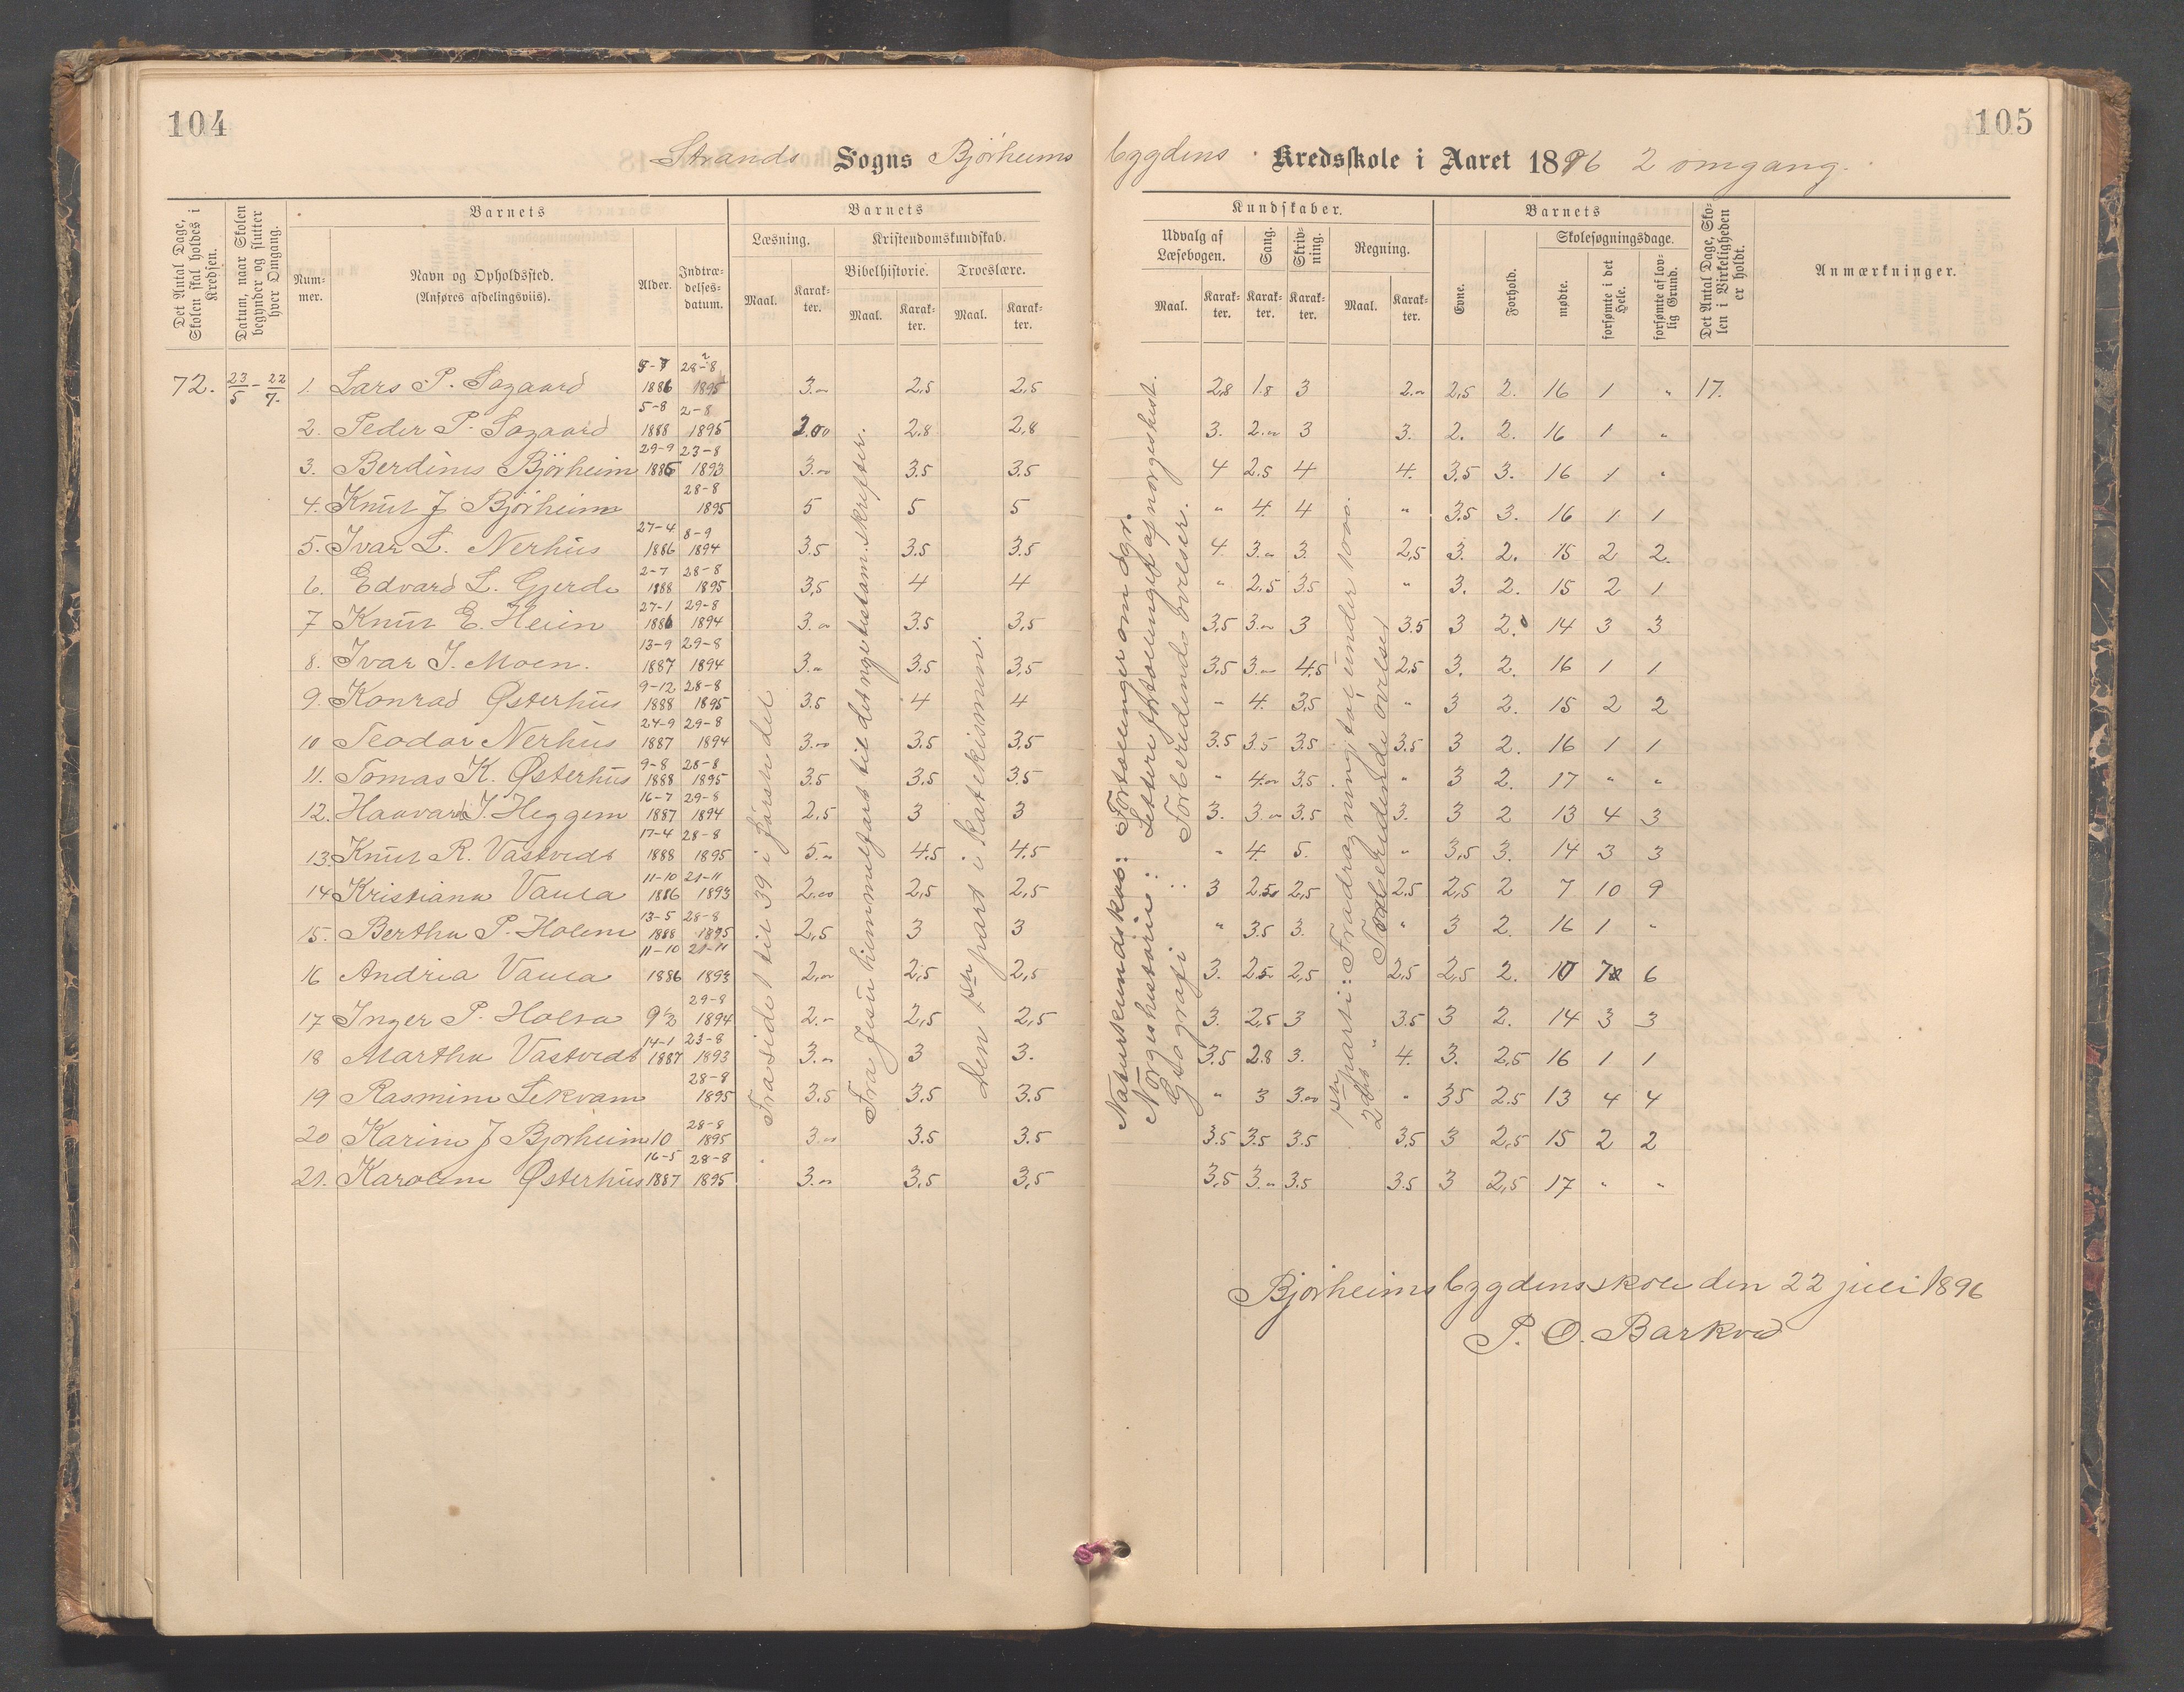 104
105
Strands Sogns Bjørheims bygdens Kredsskole i Aaret 1896 2 omgang.
Det Antal Dage, Skolen skal holdes i Kredsen.
Datum, naar Skolen begynder og slutter hver Omgang.
Barnets
Nummer.
Navn og Opholdssted.
(Anføres afdelingsviis).
Alder.
Indtrædelsesdatum.
Barnets
Læsning.
Maal.
Karakter.
Kristendomskundskab.
Bibelhistorie.
Maal.
Karakter.
Troeslære.
Maal.
Karakter.
Kundskaber.
Udvalg af Læsebogen.
Maal.
Karakter.
Sang.
Karakter.
Skrivning.
Karakter.
Regning.
Maal.
Karakter.
Barnets
Evne.
Forhold.
Skolesøgningsdage.
mødte.
forsømte i det Hele.
forsømte af lovlig Grund.
Det Antal Dage, Skolen i Virkeligheden er holdt.
Anmærkninger.
72. 23/5 - 22/7. 1. Lars P. Sagaard 1886 28-8 1895 3.00 2,5 2,5 2,8 1.8 3 2.00 2,5 2. 16 1 " 17.
2. Peder P. Sagaard 5-8 1888 2-8 1895 2.00 2.8 2,8 3. 2.00 3 3. 2. 2. 16 1 "
3. Berdines Bjørheim 29-9 1886 23-8 1893 3.00 3.5 3.5 4 2.5 4 4. 3,5 3. 16 1 "
4. Knut J Bjørheim 28-8 1895 5 5 5 " 4. 4 " 3.5 3. 16 1 1
5. Ivar L. Nerhus 27-4 1886 8-9 1894 3.5 3.5 3.5 4. 3.00 3. 2,5 3. 2. 15 2 2.
6. Edvard L. Gjerde 2-7 1888 28-8 1895 3,5 4 4 " 2,5 3.5 " 3. 2. 15 2 1
7 Knut E. Heien 27-1 1886 29-8 1894 3.00 3.5 3,5 3,5 3.00 3 3.5 3 2. 14 3 3
8. Ivar J. Moen. 13-9 1887 29-8 1894 3.00 3,5 3,5 3,5 3.00 4,5 2,5 3. 2. 16 1 1
9. Konrad Østerhus 9-12 1888 28-8 1895 3.5 4 4 " 4. 3,5 " 3 2. 15 2 2
10 Teodor Nerhus 24-9 1887 29-8 1894 3.00 3.5 3.5 3.5 3.5 3.5 3.5 3 2. 16 1 1
11. Tomas K. Østerhus 9-8 1888 28-8 1895 3.5 3,5 3.5 " 4.00 3.5 " 3 2. 17 " "
12. Haavard J. Heggem 16-7 1887 29-8 1894 2,5 3 3 3. 3.00 3.5 3. 3 2 13 4 3
13. Knut R. Vastvedt 17-4 1888 28-8 1895 5.00 4.5 4.5 " 4. 5. " 3,5 3. 14 3 3
14 Kristiana Vaula 11-10 1886 21-11 1893 2.00 2,5 2,5 3 2.50 2,5 2.5 2,5 2 7 10 9
15. Bertha P. Holem 13-5 1888 28-8 1895 2,5 3 3 " 3.5 3. " 3 2. 16 1 "
16 Andria Vaula 11-10 1886 21-11 1893 2.00 2,5 2,5 3. 2.5 2,5 2,5 2,5 2. 10 7 6
17 Inger P. Holta 9 1/2 29-8 1894 2.00 2,5 2,5 3. 2,5 3 3.5 3 2. 14 3 3
18 Martha Vastvedt 14-1 1887 23-8 1893 3.00 3 3. 3.5 2.8 3. 4. 3. 2,5 16 1 1
19 Rasmine Lekvam 28-8 1895 3.5 3.5 3.5 " 3 3.00 " 3.5 2.5 13 4 4
20 Karine J Bjørheim 10 28-8 1895 3.00 3.5 3.5 3.5 3.5 3.5 3,5 3 2,5 15 2 2
21. Karoline Østerhus 16-5 1887 28-8 1895 3.00 3,5 3,5 3,5 3.00 3.5 3.5 3 2,5 17 " "
Fra side 1 til 39 i Jørshendel
Fra Jesu himmelfart til det nye testam. skrifter.
den 1ste part i katekismen.
Naturkundskab: Fortællinger om dyr.
Norgeshistorie: Lettere fortællinger af norgeshist.
Geografi: Forberedende øvelser.
1ste parti: Fradragning tal under 1000.
2det " Forberedende øvelser
Bjørheimsbygdens skole den 22 juli 1896
P. O. Barkved